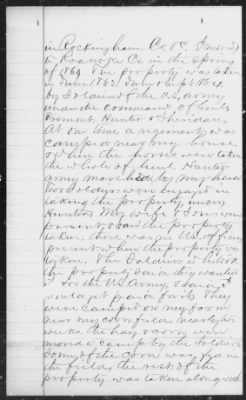 in Rockingham Co. Va. I moved
to Roanoke Co. in the Spring
of 1864 The property was taken
in June 1862 June & Sept 1864
by Soldiers of the U.S. army
under the command of Genls
Fremont, Hunter & Sheridan,
At one time a regiment was
camped near my house,
when the horse was taken
the whole of Genl Hunter
army marched by my house
two Soldiers were engaged in
taking the property,
Hunters My wife & Sons were
present & said the property
taken, there was officer
present when the property was
taken. The Soldiers who took
the property said they wanted
it for the U.S. Army, & said I
would get paid for it. They
were camped on my farm
near my corn field nearly two
weeks the hay & corn were
moved to camp by the Soldiers
Some of the corn was fed in
the field the rest of the
property was taken along with